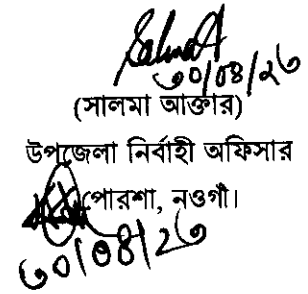 ৩০/০৪/২৩
(সালমা আক্তার)
উপজেলা নির্বাহী অফিসার
পোরশা, নওগাঁ।
৩০/০৪/২৩